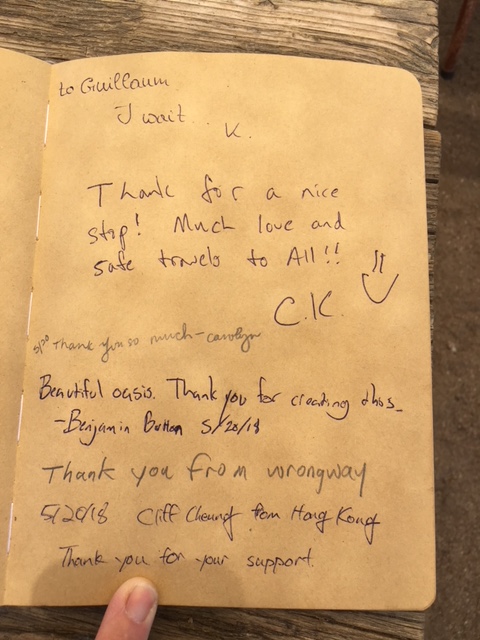 to Guillaum
I wait... K.
Thank for a nice
stop! Much love and
safe travels to All!!
C.K.
5/20 Thank you so much - Carolyn
Beautiful oasis. Thank you for creating this_
- Benjamin Button 5/20/18
Thank you from wrongway
5/20/18 Cliff Cheung from Hong Kong
Thank you for your support.